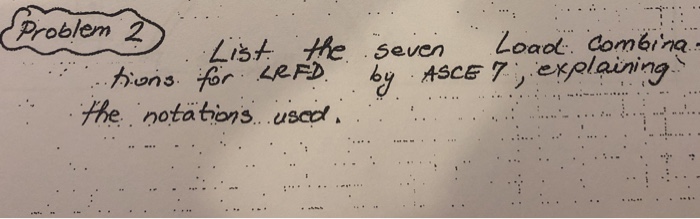 Problem 2
List the seven Load Combina-
tions for LRFD by ASCE 7, explaining
the notations used.